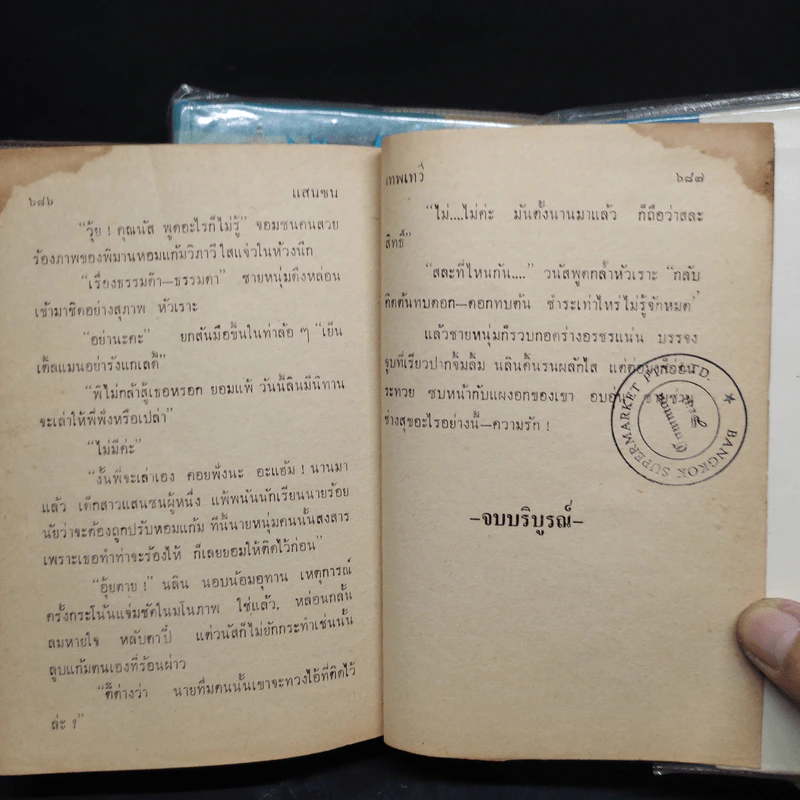 ๖๘๖ แสนซน
“วุ้ย ! คุณนัส พูดอะไรก็ไม่รู้” จอมซนคนสวย
ร้องภาพของพิมานหอมแก้มวิภาวีใสแจ๋วในห้วงนึก
“เรื่องธรรมด๊า—ธรรมดา” ชายหนุ่มดึงหล่อน
เข้ามาชิดอย่างสุภาพ หัวเราะ
“อย่านะคะ” ยกสันมือขึ้นในท่าล้อ ๆ “เย็น
เติ้ลแมนอย่ารังแกเลดี้”
“พี่ไม่กล้าสู้เธอหรอก ยอมแพ้ วันนี้ลินมีนิทาน
จะเล่าให้พี่ฟังหรือเปล่า”
“ไม่มีค่ะ”
“งั้นพี่จะเล่าเอง คอยฟังนะ อะแอ้ม ! นานมา
แล้ว เด็กสาวแสนซนผู้หนึ่ง แพ้พนันนักเรียนนายร้อย
นัยว่าจะต้องถูกปรับหอมแก้ม ทีนี้นายหนุ่มคนนั้นสงสาร
เพราะเธอทำท่าจะร้องไห้ ก็เลยยอมให้ติดไว้ก่อน”
“อุ้ยตาย !” นลิน นอบน้อมอุทาน เหตุการณ์
ครั้งกระโน้นแจ่มชัดในมโนภาพ ใช่แล้ว. หล่อนกลั้น
ลมหายใจ หลับตาปี๋ แต่วนัสก็ไม่ยักกระทำเช่นนั้น
ลูบแก้มตนเองที่ร้อนผ่าว
“ถ้าต่างว่า นายที่มคนนั้นเขาจะทวงไอ้ที่ติดไว้
ล่ะ ?”
เทพเทวี ๖๘๗
“ไม่....ไม่ค่ะ มันตั้งนานมาแล้ว ก็ถือว่าสละ
สิทธิ์”
“สละที่ไหนกัน....” วนัสพูดกล้ำหัวเราะ “กลับ
คิดต้นทบดอก—ดอกทบต้น ชำระเท่าไหร่ไม่รู้จักหมด”
แล้วชายหนุ่มก็รวบกอดร่างอรชรแน่น บรรจง
จูบที่เรียวปากจิ้มลิ้ม นลินดิ้นรนผลักไส แต่ต่อมาก็อ่อน
ระทวย ซบหน้ากับแผงอกของเขา อบอุ่น
ช่างสุขอะไรอย่างนี้—ความรัก !
—จบบริบูรณ์—
BANGKOK SUPERMARKET LTD.